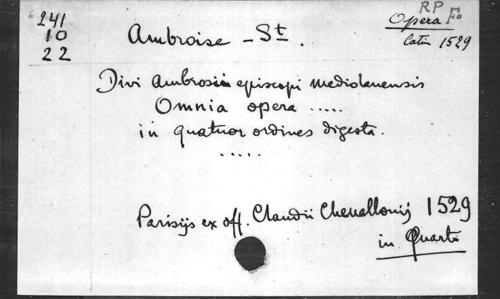 241
10
22
RP Fo
Opera
latin 1529
Ambroise - St.
Divi Ambrosii episcopi mediolanensis
Omnia opera .....
in quatuor ordines digesta.
.....
Parisijs ex off. Claudii Chevallonij 1529
in Quarto